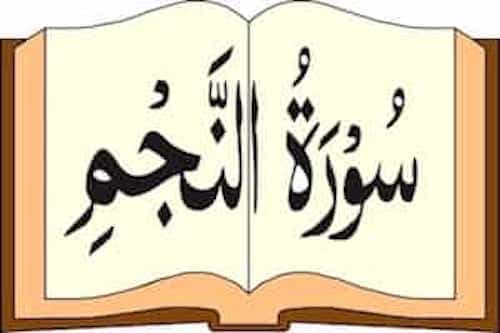 سُوْرَةُ النَّجْمِ